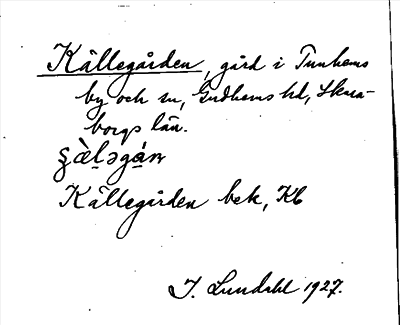 Källegården, gård i Tunhems
by och sn, Gudhems hd, Skara-
borgs län.
Källegården bek, Kb
I. Lundahl 1927.